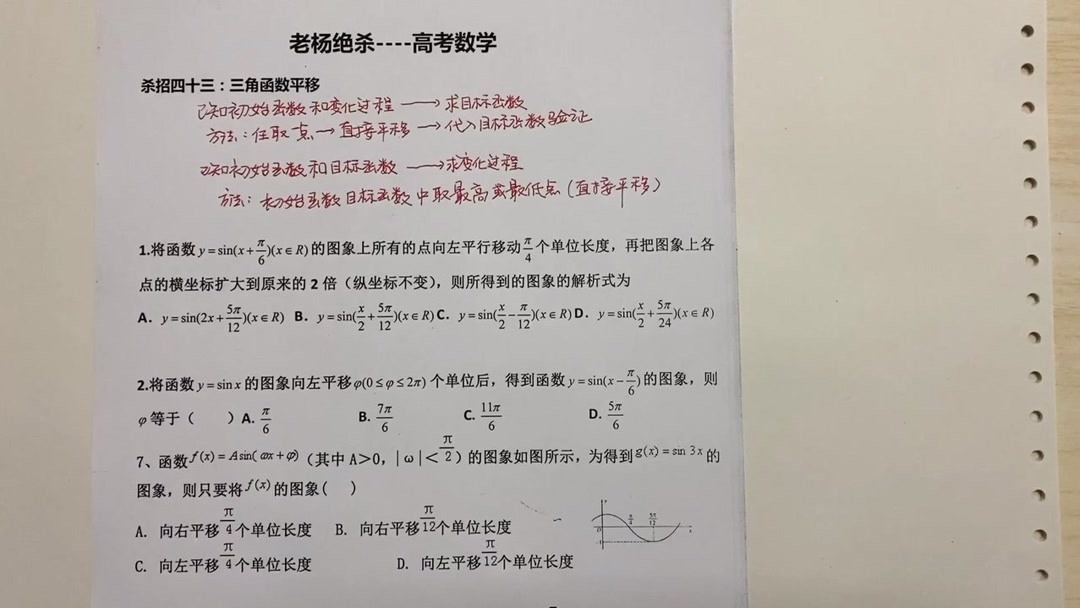 老杨绝杀----高考数学
杀招四十三：三角函数平移
已知初始函数和变化过程 → 求目标函数
方法：任取一点 → 直接平移 → 代入目标函数验证
已知初始函数和目标函数 → 求变化过程
方法：初始函数目标函数中取最高或最低点(直接平移)
1.将函数 y=sin(x+π/6)(x∈R) 的图象上所有的点向左平行移动 π/4 个单位长度，再把图象上各
点的横坐标扩大到原来的 2 倍（纵坐标不变），则所得到的图象的解析式为
A. y=sin(2x+5π/12)(x∈R) B. y=sin(x/2+5π/12)(x∈R) C. y=sin(x/2-π/12)(x∈R) D. y=sin(x/2+5π/24)(x∈R)
2.将函数 y=sin x 的图象向左平移 φ(0≤φ≤2π) 个单位后，得到函数 y=sin(x-π/6) 的图象，则
φ 等于（ ）A. π/6 B. 7π/6 C. 11π/6 D. 5π/6
7、函数 f(x)=Asin(ωx+φ)（其中 A＞0，|ω|＜π/2）的图象如图所示，为得到 g(x)=sin 3x 的
图象，则只要将 f(x) 的图象( )
A. 向右平移 π/4 个单位长度 B. 向右平移 π/12 个单位长度
C. 向左平移 π/4 个单位长度 D. 向左平移 π/12 个单位长度